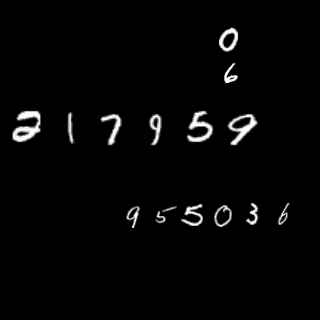 0
6
217959
955036